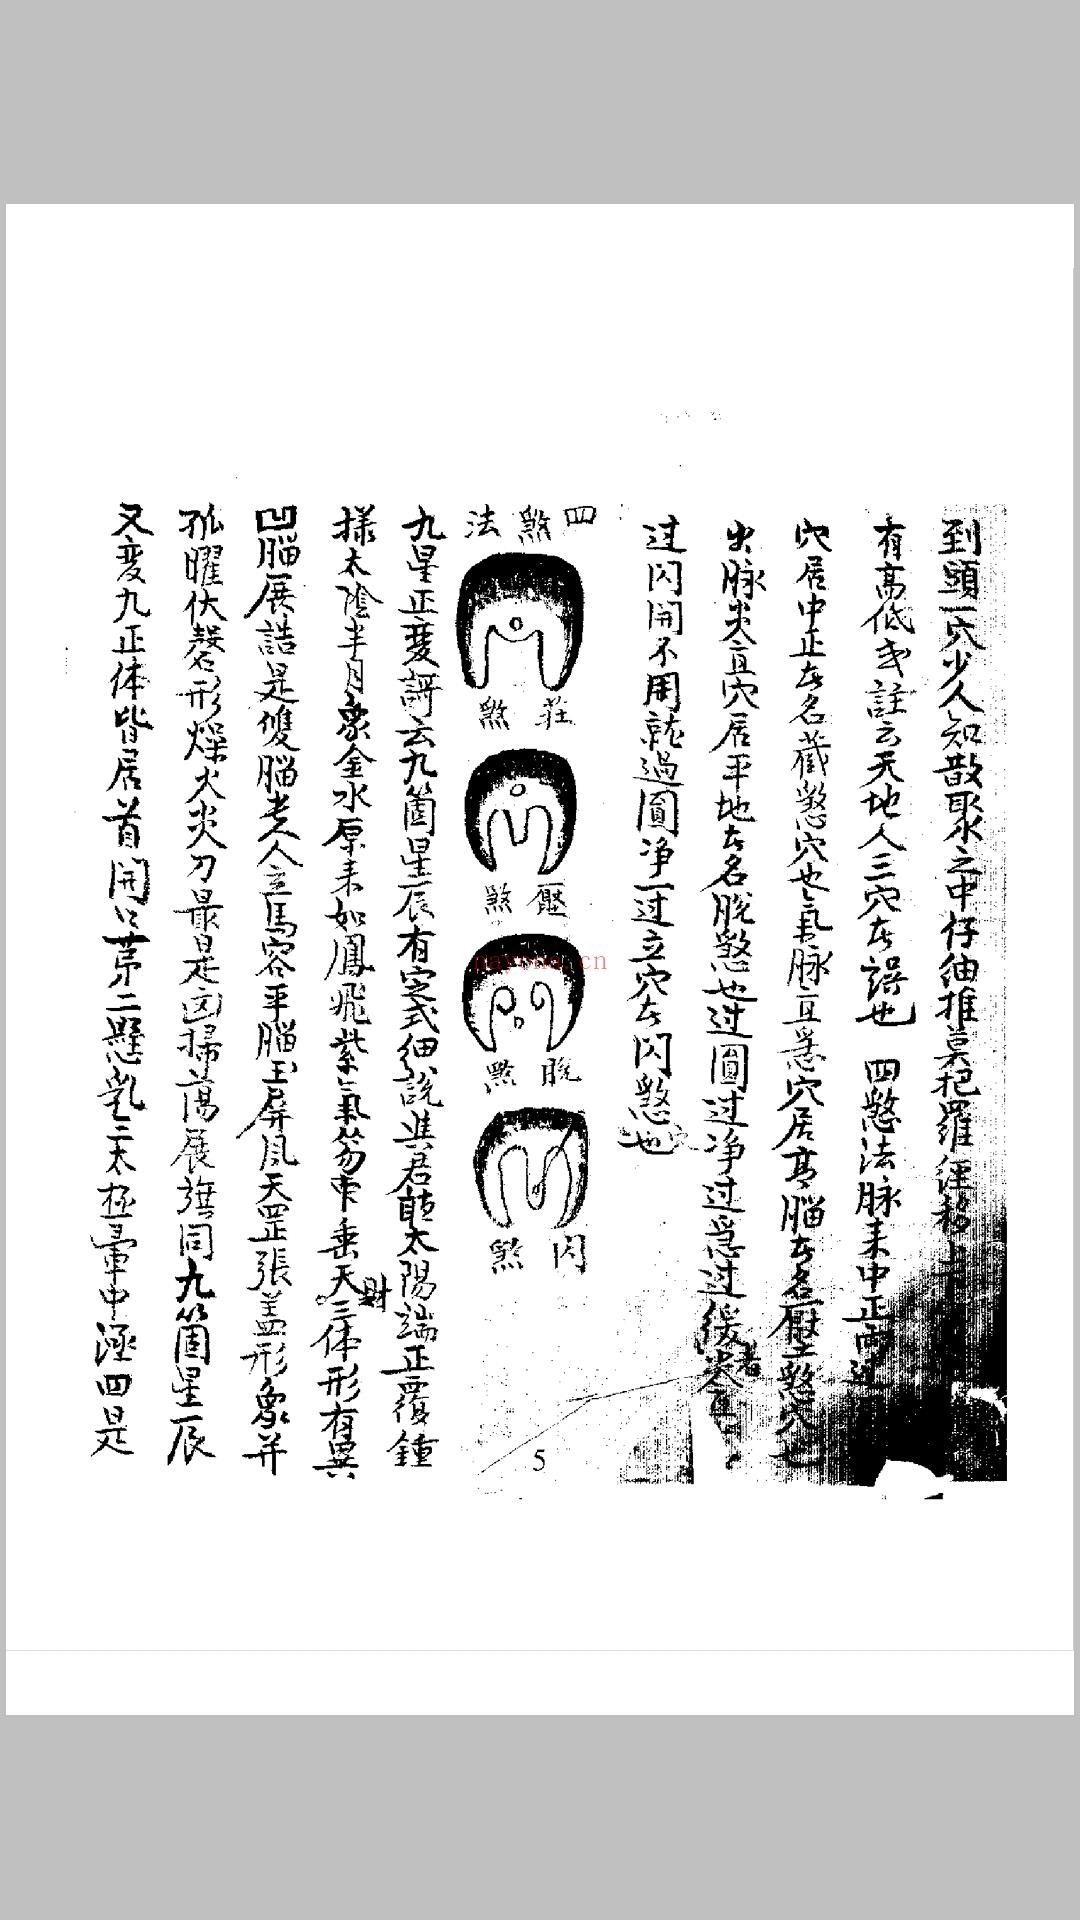 到頭一穴少人知散聚之中仔細推莫把羅經移上下
有高低或註云天地人三穴者誤也 四煞法脉来中正而
穴居中正者名藏煞穴也氣脉直急穴居高腦者名壓煞穴也
出脉尖直穴居平地者名脱煞也过圓过净过急过缓尖直者
过闪開不用就過圓净一过立穴者闪煞也
四煞法
莊煞
壓煞
脱煞
闪煞
九星正変謌云九箇星辰有定式細説與君聼太陽端正覆鍾
様太陰半月象金水原来如鳳飛紫氣笏串垂天財三体形有異
凹腦展誥是雙腦老人立馬容平腦玉屏風天罡張盖形象并
孤曜伏磬形燥火尖刀最是卤掃蕩展旗同九箇星辰
又変九正体皆居首開口苐二懸乳三太極暈中涵四是
5
nayona.cn